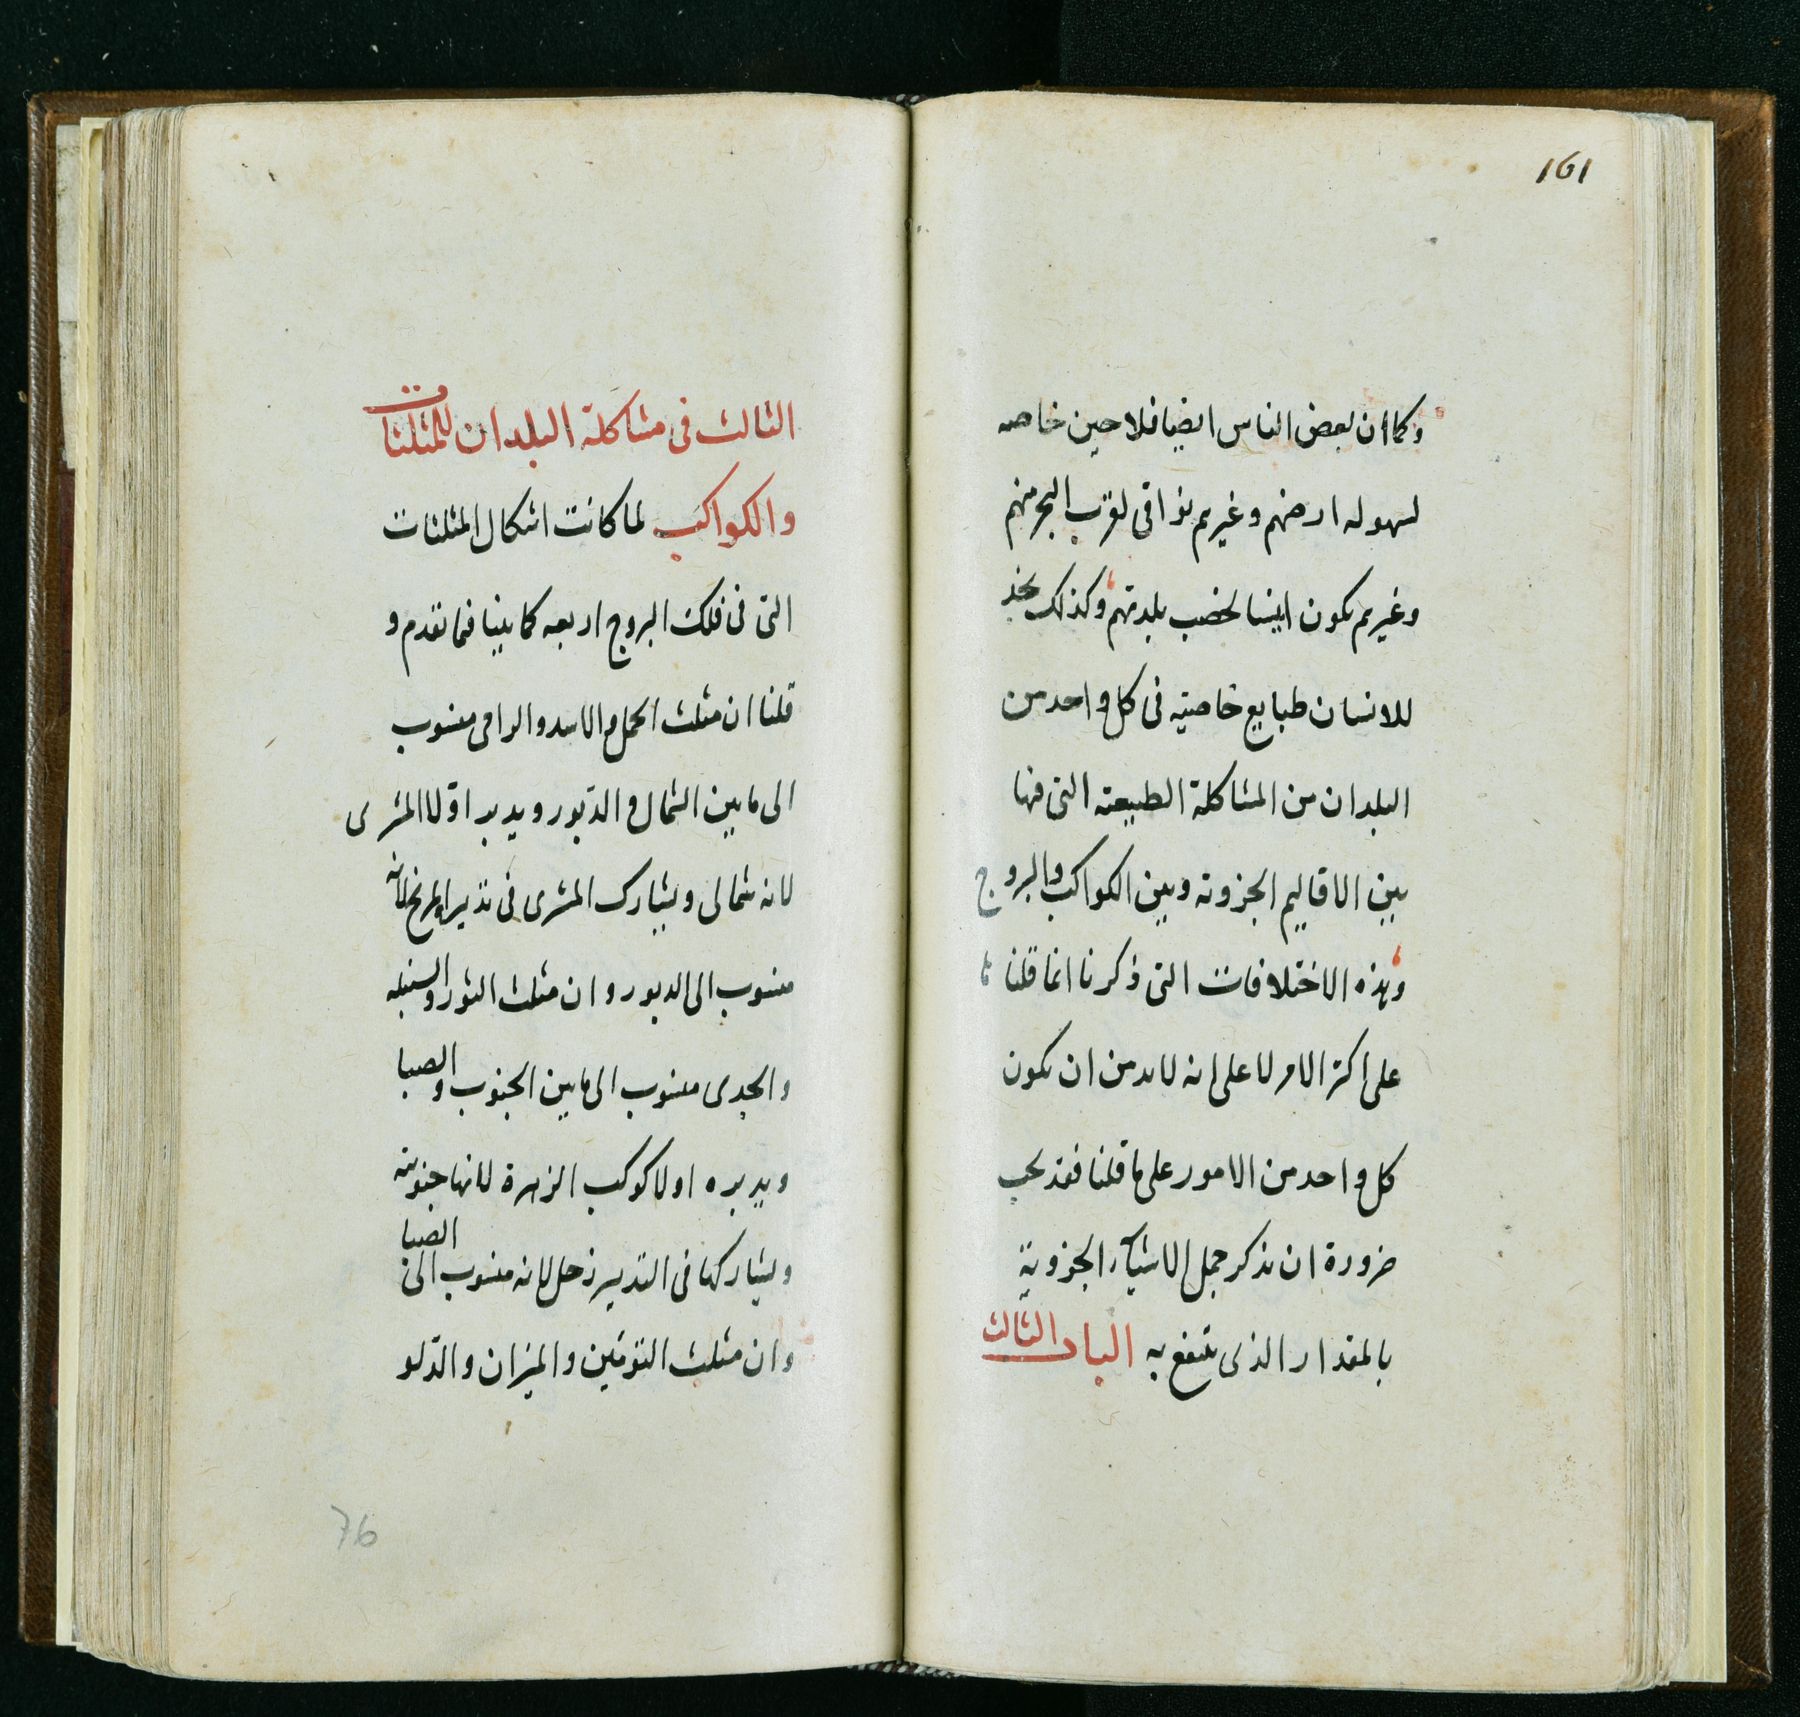 161
وكما ان لبعض الناس ايضا فلاحين خاصه
لسهوله ارضهم وغيرهم نواقى لقرب البحر منهم
وغيرهم يكون اينسا لخصب بلدتهم وكذلك نجد
للانسان طبايع خاصيته فى كل واحد من
البلدان من المشاكلة الطبيعته التى فيها
بين الاقاليم الجزوته وبين الكواكب والبروج
وهذه الاختلافات التى ذكرنا انما قلنا ها
على اكثر الامر لا على انه لابد من ان يكون
كل واحد من الامور على ما قلنا فقد يجب
ضرورة ان نذكر جمل الاشيآء الجزوية
بالمقدار الذى ينتفع به الباب الثالث
الثالث فى مشاكلة البلدان للمثلثات
والكواكب لما كانت اشكال المثلثات
التى فى فلك البروج اربعه كما بينا فيما تقدم و
قلنا ان مثلث الحمل والاسد والرامى منسوب
الى ما بين الشمال والدبور ويدبر اولا المشترى
لانه شمالى ويشارك المشترى فى تدبيره المريخ لانه
منسوب الى الدبور وان مثلث الثور والسنبله
والجدى منسوب الى ما بين الجنوب والصبا
ويدبره اولا كوكب الزهرة لانها جنوبية
ويشاركها فى التدبير زحل لانه منسوب الى الصبا
وان مثلث التوءمين والميزان والدلو
76